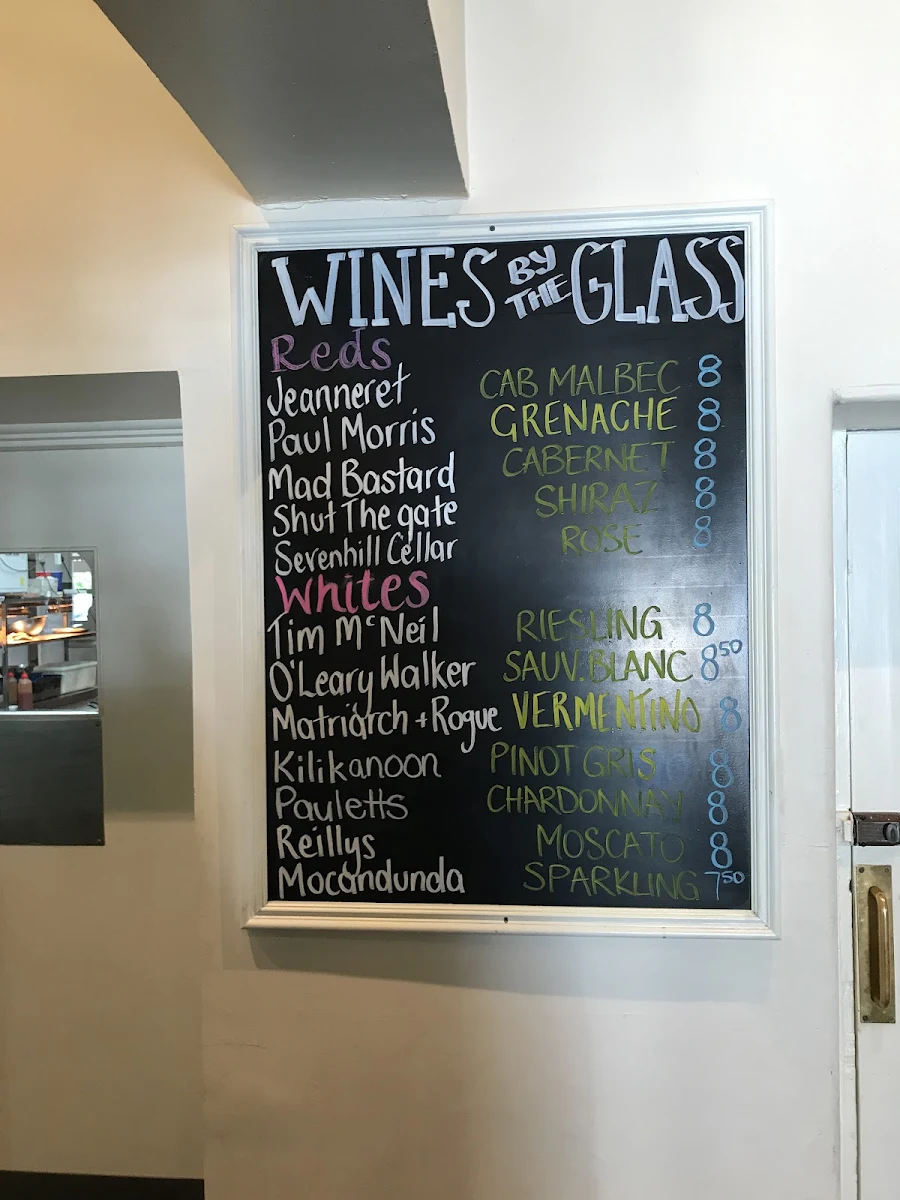 WINES BY THE GLASS
Reds
Jeanneret CAB MALBEC 8
Paul Morris GRENACHE 8
Mad Bastard CABERNET 8
Shut The gate SHIRAZ 8
Sevenhill Cellar ROSE 8
Whites
Tim McNeil RIESLING 8
O'Leary Walker SAUV. BLANC 8 50
Matriarch + Rogue VERMENTINO 8
Kilikanoon PINOT GRIS 8
Pauletts CHARDONNAY 8
Reillys MOSCATO 8
Mocandunda SPARKLING 7 50